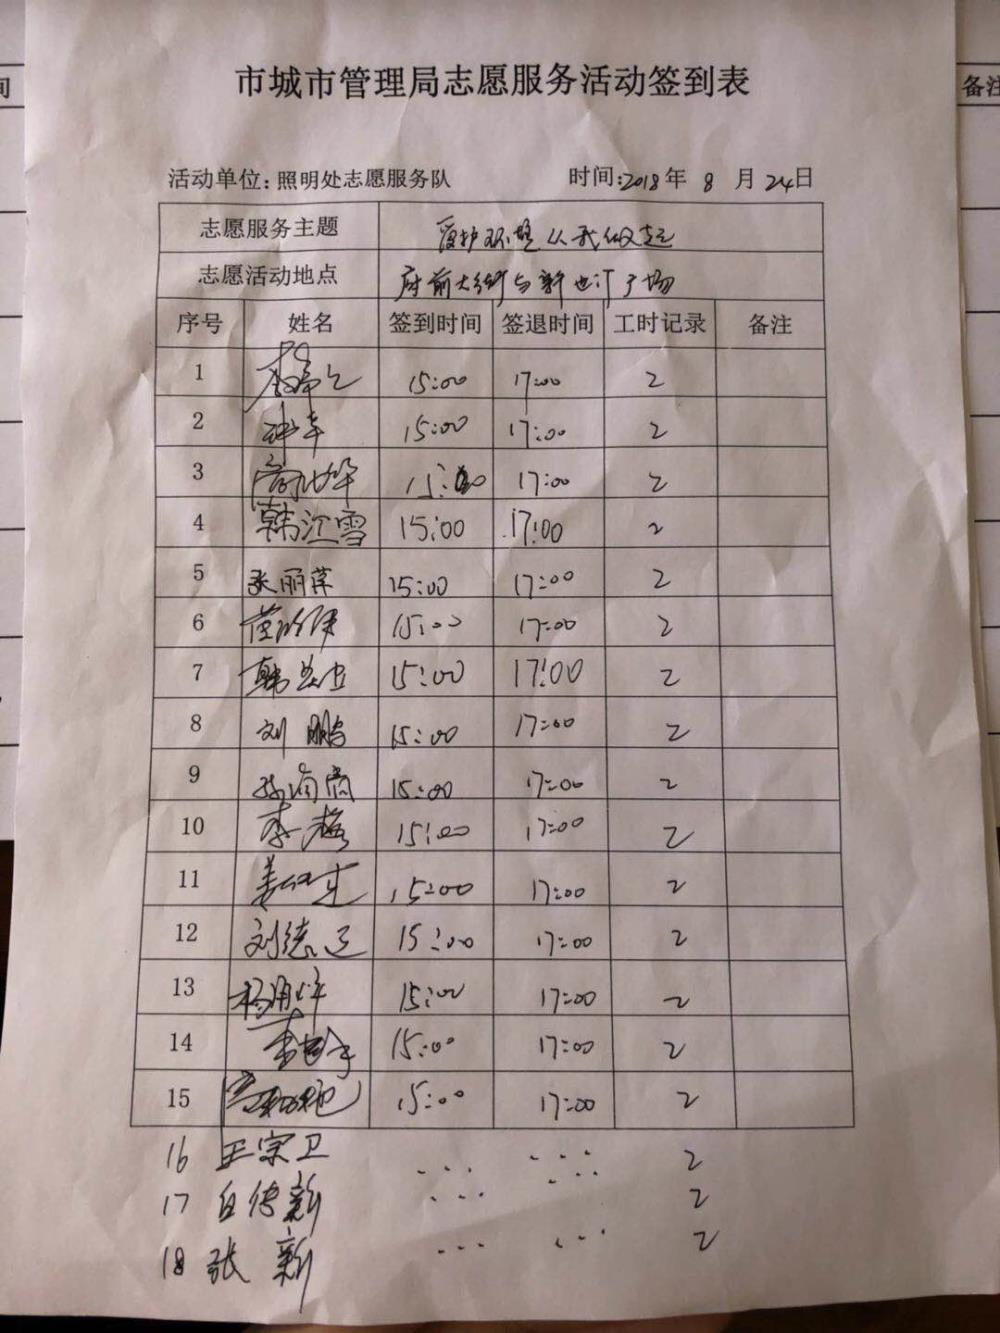 间
备注
市城市管理局志愿服务活动签到表
活动单位:照明处志愿服务队 时间:2018年 8 月 24日
志愿服务主题 爱护环境从我做起
志愿活动地点 府前大街与新世汗广场
序号 姓名 签到时间 签退时间 工时记录 备注
1 15:00 17:00 2
2 15:00 17:00 2
3 15:00 17:00 2
4 韩江雪 15:00 17:00 2
5 张丽萍 15:00 17:00 2
6 15:00 17:00 2
7 韩 15:00 17:00 2
8 刘鹏 15:00 17:00 2
9 15:00 17:00 2
10 李 15:00 17:00 2
11 姜 15:00 17:00 2
12 刘德 15:00 17:00 2
13 杨 15:00 17:00 2
14 李 15:00 17:00 2
15 15:00 17:00 2
16 王宗卫 ... ... 2
17 白德新 ... ... 2
18 张新 ... ... 2